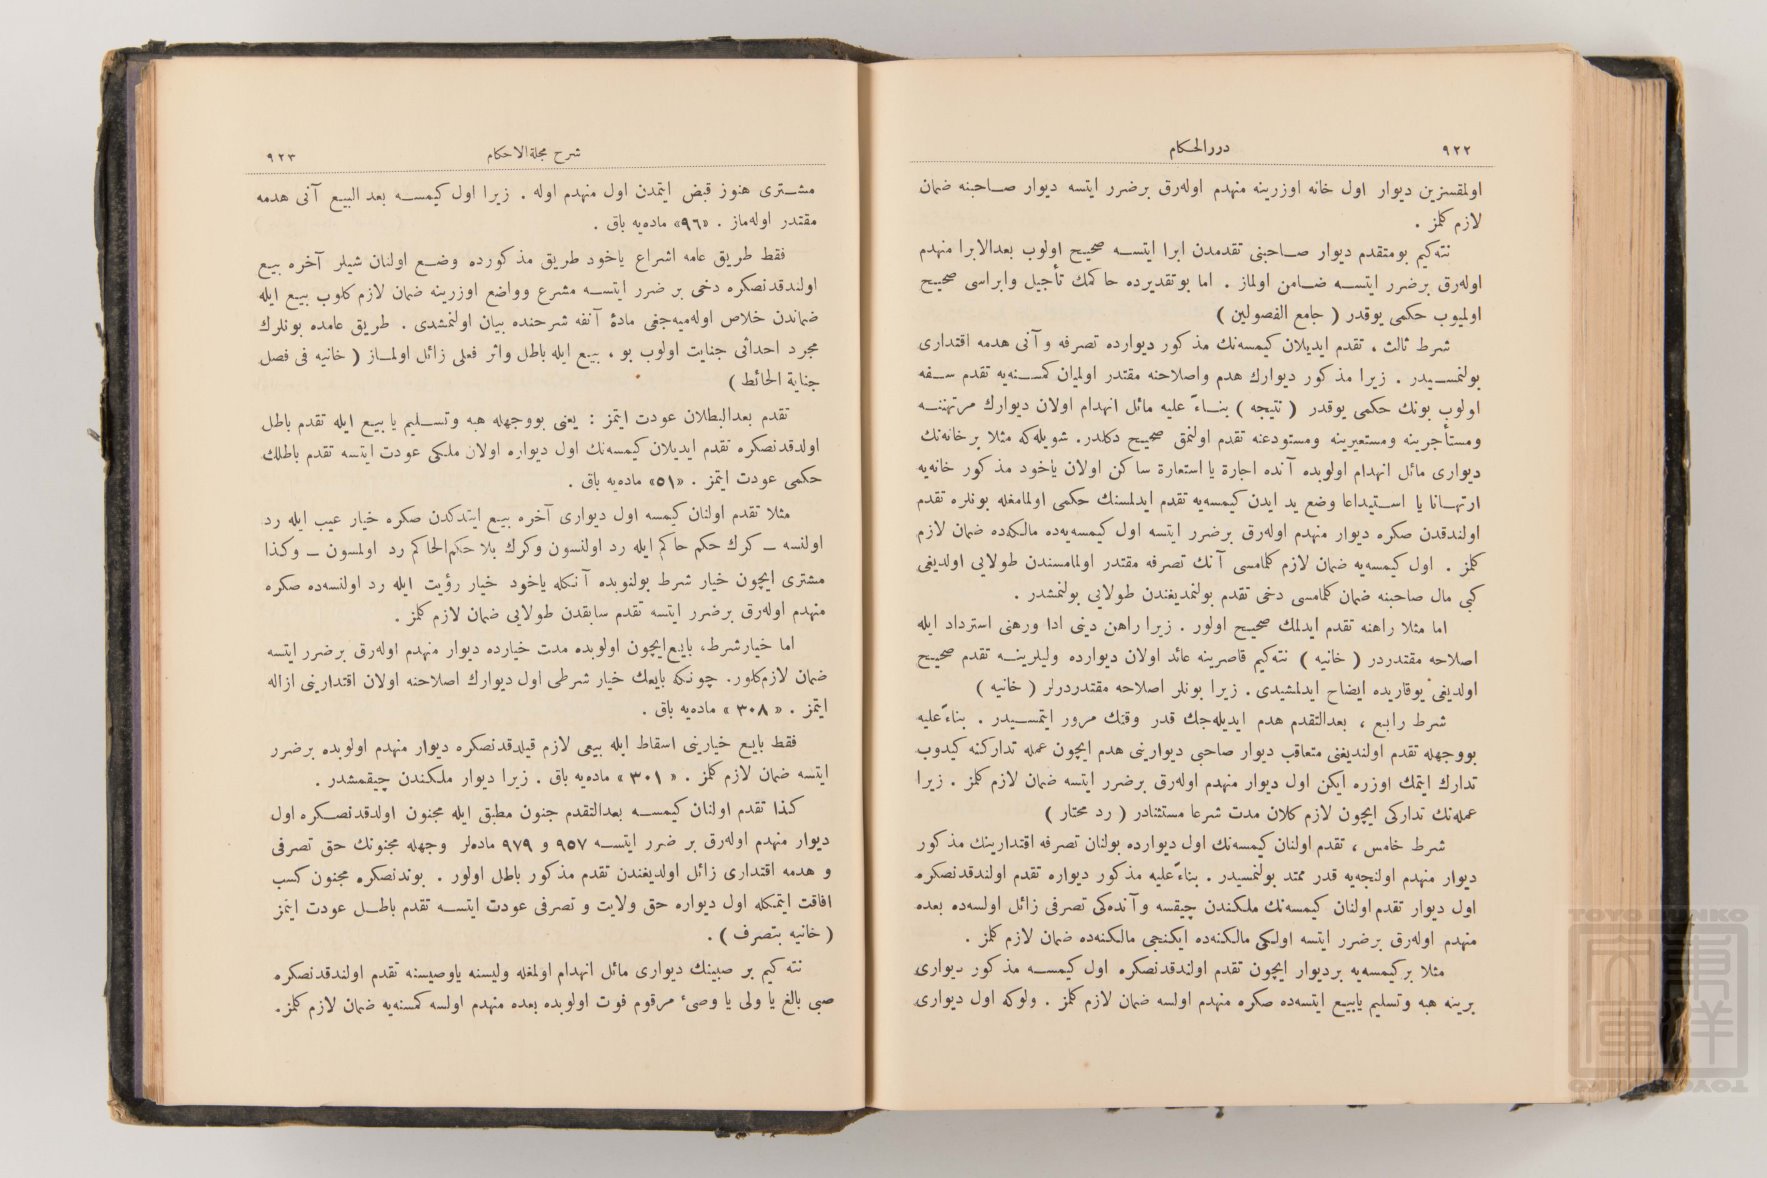 ٩٢٢
دررالحكام
اولمقسزین دیوار اول خانه اوزرینه منهدم اوله‌رق برضرر ایتسه دیوار صاحبنه ضمان
لازم كلمز .
نته‌كیم بومتقدم دیوار صاحبنی تقدمدن ابرا ایتسه صحیح اولوب بعدالابرا منهدم
اوله‌رق برضرر ایتسه ضامن اولماز . اما بوتقدیرده حاكمك تأجیل وابراسی صحیح
اولمیوب حكمی یوقدر ( جامع الفصولین )
شرط ثالث ، تقدم ایدیلان كیمسه‌نك مذكور دیوارده تصرفه وآنی هدمه اقتداری
بولنمسیدر . زیرا مذكور دیوارك هدم واصلاحنه مقتدر اولمیان كمسنه‌یه تقدم سفه
اولوب بونك حكمی یوقدر ( نتیجه ) بناءً علیه مائل انهدام اولان دیوارك مرتهننه
ومستأجرینه ومستعیرینه ومستودعنه تقدم اولنمق صحیح دكلدر. شویله‌كه مثلا برخانه‌نك
دیواری مائل انهدام اولوبده آنده اجارة یا استعارة ساكن اولان یاخود مذكور خانه‌یه
ارتهانا یا استیداعا وضع ید ایدن كیمسه‌یه تقدم ایدلمسنك حكمی اولمامغله بونلره تقدم
اولندقدن صكره دیوار منهدم اوله‌رق برضرر ایتسه اول كیمسه‌یه‌ده مالكه‌ده ضمان لازم
كلمز . اول كیمسه‌یه ضمان لازم كلمامسی آنك تصرفه مقتدر اولمامسندن طولایی اولدیغی
كبی مال صاحبنه ضمان كلمامسی دخی تقدم بولنمدیغندن طولایی بولنمشدر .
اما مثلا راهنه تقدم ایدلمك صحیح اولور . زیرا راهن دینی ادا ورهنی استرداد ایله
اصلاحه مقتدردر ( خانیه ) نته‌كیم قاصرینه عائد اولان دیوارده ولیلرینه تقدم صحیح
اولدیغی یوقاریده ایضاح ایدلمشیدی . زیرا بونلر اصلاحه مقتدردرلر ( خانیه )
شرط رابع ، بعدالتقدم هدم ایدیله‌جك قدر وقتك مرور ایتمسیدر . بناءً علیه
بووجهله تقدم اولندیغی متعاقب دیوار صاحبی دیوارینی هدم ایچون عمله تداركنه كیدوب
تدارك ایتمك اوزره ایكن اول دیوار منهدم اوله‌رق برضرر ایتسه ضمان لازم كلمز . زیرا
عمله‌نك تداركی ایچون لازم كلان مدت شرعا مستثنادر ( رد محتار )
شرط خامس ، تقدم اولنان كیمسه‌نك اول دیوارده بولنان تصرفه اقتدارینك مذكور
دیوار منهدم اولنجه‌یه قدر ممتد بولنمسیدر . بناءً علیه مذكور دیواره تقدم اولندقدنصكره
اول دیوار تقدم اولنان كیمسه‌نك ملكندن چیقسه وآنده‌كی تصرفی زائل اولسه‌ده بعده
منهدم اوله‌رق برضرر ایتسه اولكی مالكنه‌ده ایكنجی مالكنه‌ده ضمان لازم كلمز .
مثلا بركیمسه‌یه بردیوار ایچون تقدم اولندقدنصكره اول كیمسه مذكور دیواری
برینه هبه وتسلیم یابیع ایتسه‌ده صكره منهدم اولسه ضمان لازم كلمز . ولوكه اول دیواری
شرح مجلةالاحكام
٩٢٣
مشتری هنوز قبض ایتمدن اول منهدم اوله . زیرا اول كیمسه بعد البیع آنی هدمه
مقتدر اوله‌ماز . «٩٦» ماده‌یه باق .
فقط طریق عامه اشراع یاخود طریق مذكورده وضع اولنان شیلر آخره بیع
اولندقدنصكره دخی برضرر ایتسه مشرع وواضع اوزرینه ضمان لازم كلوب بیع ایله
ضماندن خلاص اوله‌میه‌جغی مادهٔ آنفه شرحنده بیان اولنمشدی . طریق عامده بونلرك
مجرد احداثی جنایت اولوب بو ، بیع ایله باطل واثر فعلی زائل اولماز ( خانیه فی فصل
جنایة الحائط )
تقدم بعدالبطلان عودت ایتمز : یعنی بووجهله هبه وتسلیم یا بیع ایله تقدم باطل
اولدقدنصكره تقدم ایدیلان كیمسه‌نك اول دیواره اولان ملكی عودت ایتسه تقدم باطلك
حكمی عودت ایتمز . «٥١» ماده‌یه باق .
مثلا تقدم اولنان كیمسه اول دیواری آخره بیع ایتدكدن صكره خیار عیب ایله رد
اولنسه ـ كرك حكم حاكم ایله رد اولنسون وكرك بلا حكم‌الحاكم رد اولمسون ـ وكذا
مشتری ایچون خیار شرط بولنوبده آنكله یاخود خیار رؤیت ایله رد اولنسه‌ده صكره
منهدم اوله‌رق برضرر ایتسه تقدم سابقدن طولایی ضمان لازم كلمز .
اما خیارشرط، بایع‌ایچون اولوبده مدت خیارده دیوار منهدم اوله‌رق برضرر ایتسه
ضمان لازم‌كلور. چونكه بایعك خیار شرطی اول دیوارك اصلاحنه اولان اقتدارینی ازاله
ایتمز . « ٣٠٨ » ماده‌یه باق .
فقط بایع خیارینی اسقاط ایله بیعی لازم قیلدقدنصكره دیوار منهدم اولوبده برضرر
ایتسه ضمان لازم كلمز . « ٣٠١ » ماده‌یه باق . زیرا دیوار ملكندن چیقمشدر .
كذا تقدم اولنان كیمسه بعدالتقدم جنون مطبق ایله مجنون اولدقدنصكره اول
دیوار منهدم اوله‌رق بر ضرر ایتسه ٩٥٧ و ٩٧٩ ماده‌لر وجهله مجنونك حق تصرفی
و هدمه اقتداری زائل اولدیغندن تقدم مذكور باطل اولور . بوندنصكره مجنون كسب
افاقت ایتمكله اول دیواره حق ولایت و تصرفی عودت ایتسه تقدم باطل عودت ایتمز
( خانیه بتصرف ) .
نته‌كیم بر صبینك دیواری مائل انهدام اولمغله ولیسنه یاوصیسنه تقدم اولندقدنصكره
صبی بالغ یا ولی یا وصیٔ مرقوم فوت اولوبده بعده منهدم اولسه كمسنه‌یه ضمان لازم كلمز.
TOYO BUNKO
東洋文庫
TOYO BUNKO